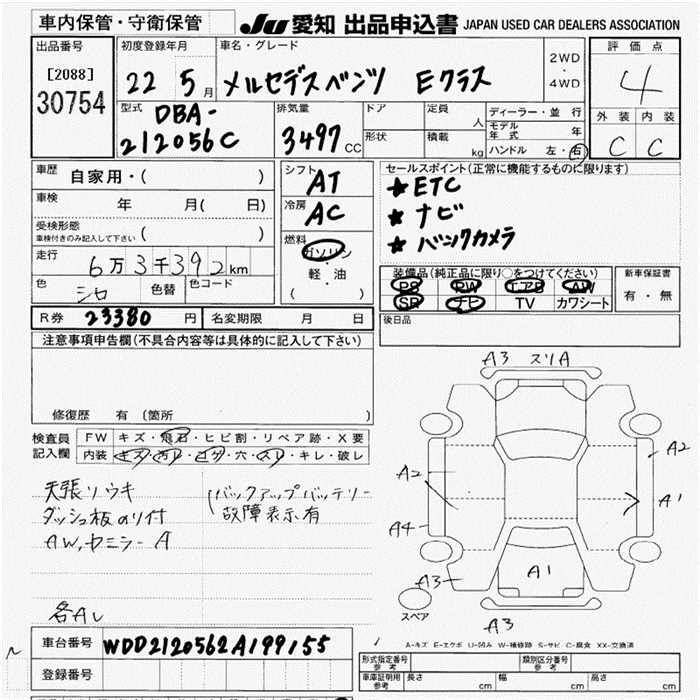 車内保管・守衛保管
JU 愛知 出品申込書 JAPAN USED CAR DEALERS ASSOCIATION
出品番号
[2088]
30754
初度登録年月
22 5月
車名・グレード
メルセデスベンツ Eクラス
2WD
・
4WD
評価点
4
外装 内装
C C
型式
DBA-
212056C
排気量
3497 CC
ドア
形状
定員 人
積載 kg
ディーラー・並行
モデル年式 年
ハンドル 左・右
車歴 自家用・( )
車検 年 月( 日)
受検形態
車検付きのみ記入して下さい ( )
走行
6万3千392km
色 シロ 色替 色コード
シフト
AT
冷房
AC
燃料
ガソリン
・
軽・油
( )
セールスポイント(正常に機能するものに限ります)
★ETC
★ナビ
★バックカメラ
装備品(純正品に限り○をつけてください)
PS PW エアB AW
SR ナビ TV カワシート
新車保証書
有・無
後日品
R券 23380 円 名変期限 月 日
注意事項申告欄(不具合内容等は具体的に記入して下さい)
修復歴 有 〔箇所 〕
検査員記入欄
FW キズ・飛石・ヒビ割・リペア跡・X要
内装 キズ・汚レ・コゲ・穴・スレ・キレ・破レ
天張ソウキ
ダッシュ板のり付
AW,ヤミラーA
バックアップバッテリー
故障表示有
各AL
A3 スリA
A2
A2
A1
A4
A1
A3
スペア
A3
A-キズ E-エクボ U-凹み W-補修跡 S-サビ C-腐食 XX-交換済
車台番号 WDD2120562A199155
登録番号
型式指定番号参考 類別区分番号参考
車庫証明用参考 長さ cm 幅 cm 高さ cm